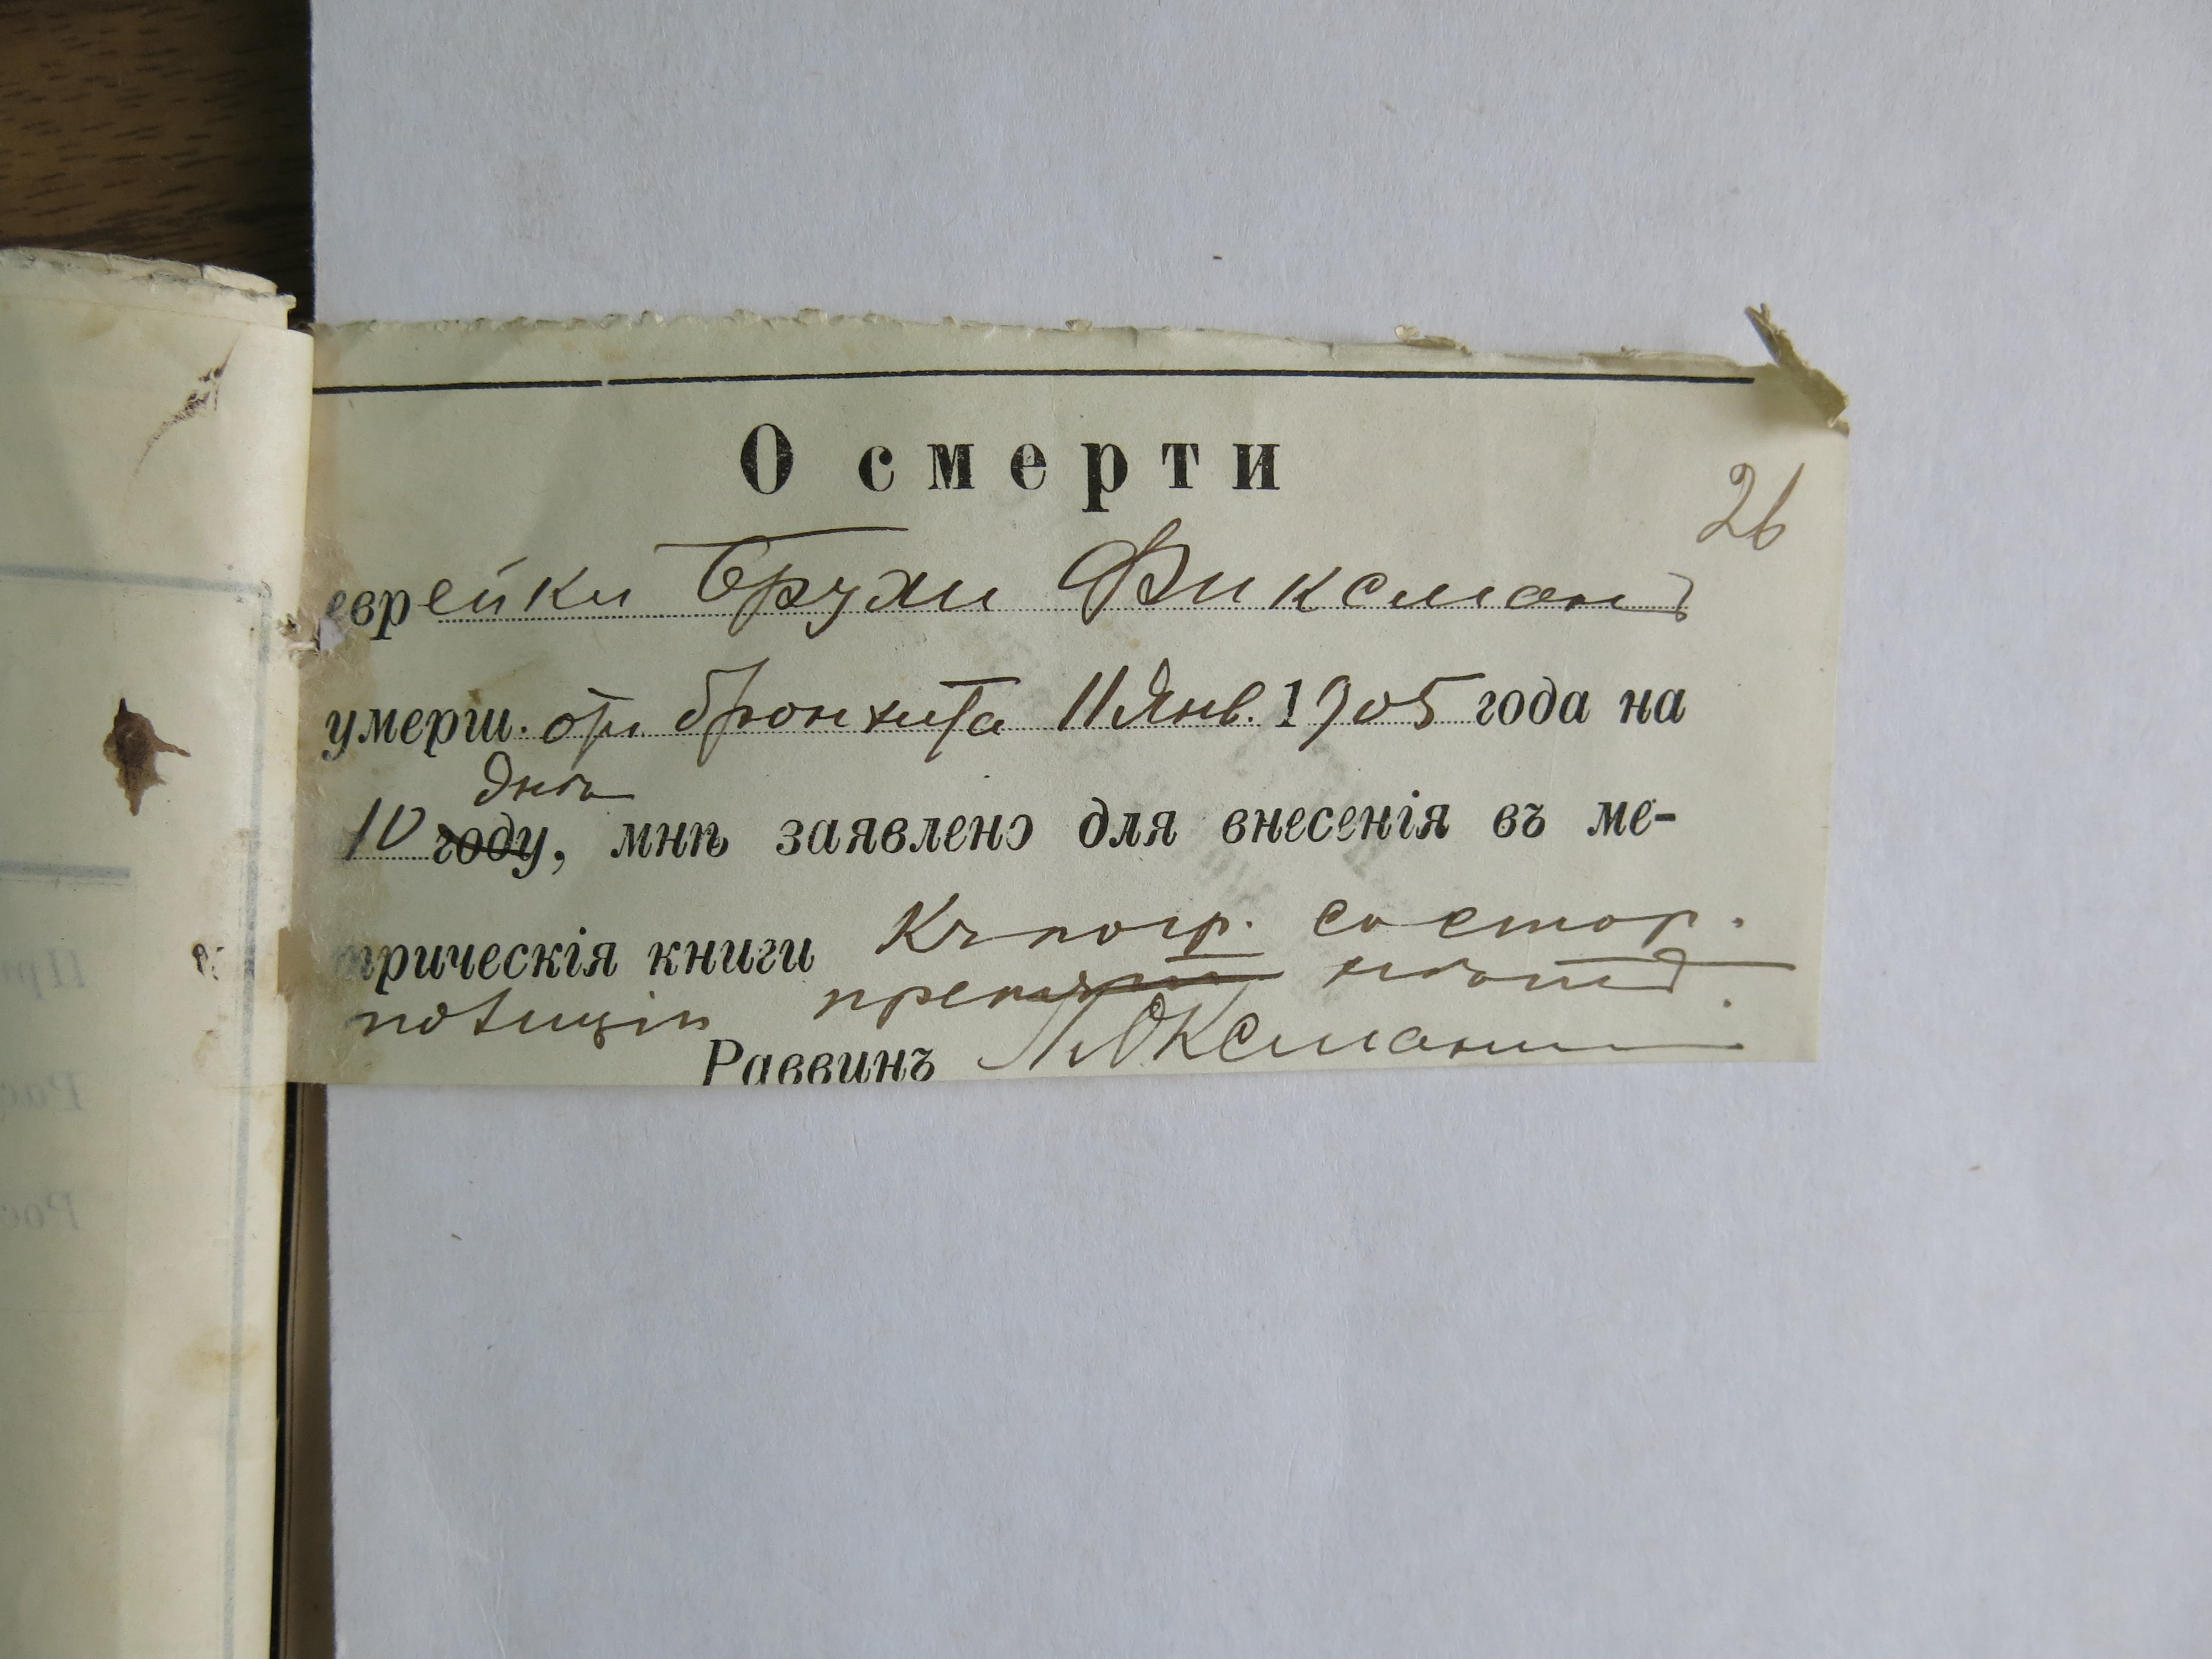 О смерти
26
еврейки Брухи Фиксманъ
умерш. отъ бронхита 11 Янв. 1905 года на
дня
10 году, мнѣ заявлено для внесенія въ ме-
трическія книги Къ погр. со стор.
полиціи препят нѣтъ.
Раввинъ Л. Оксманъ